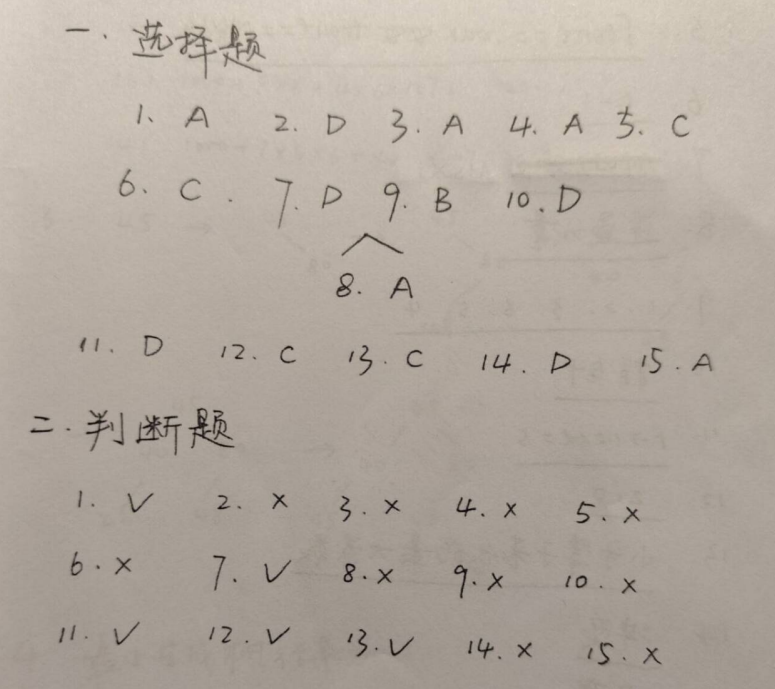 一. 选择题
1. A 2. D 3. A 4. A 5. C
6. C. 7. D 9. B 10. D
8. A
11. D 12. C 13. C 14. D 15. A
二. 判断题
1. √ 2. × 3. × 4. × 5. ×
6. × 7. √ 8. × 9. × 10. ×
11. √ 12. √ 13. √ 14. × 15. ×